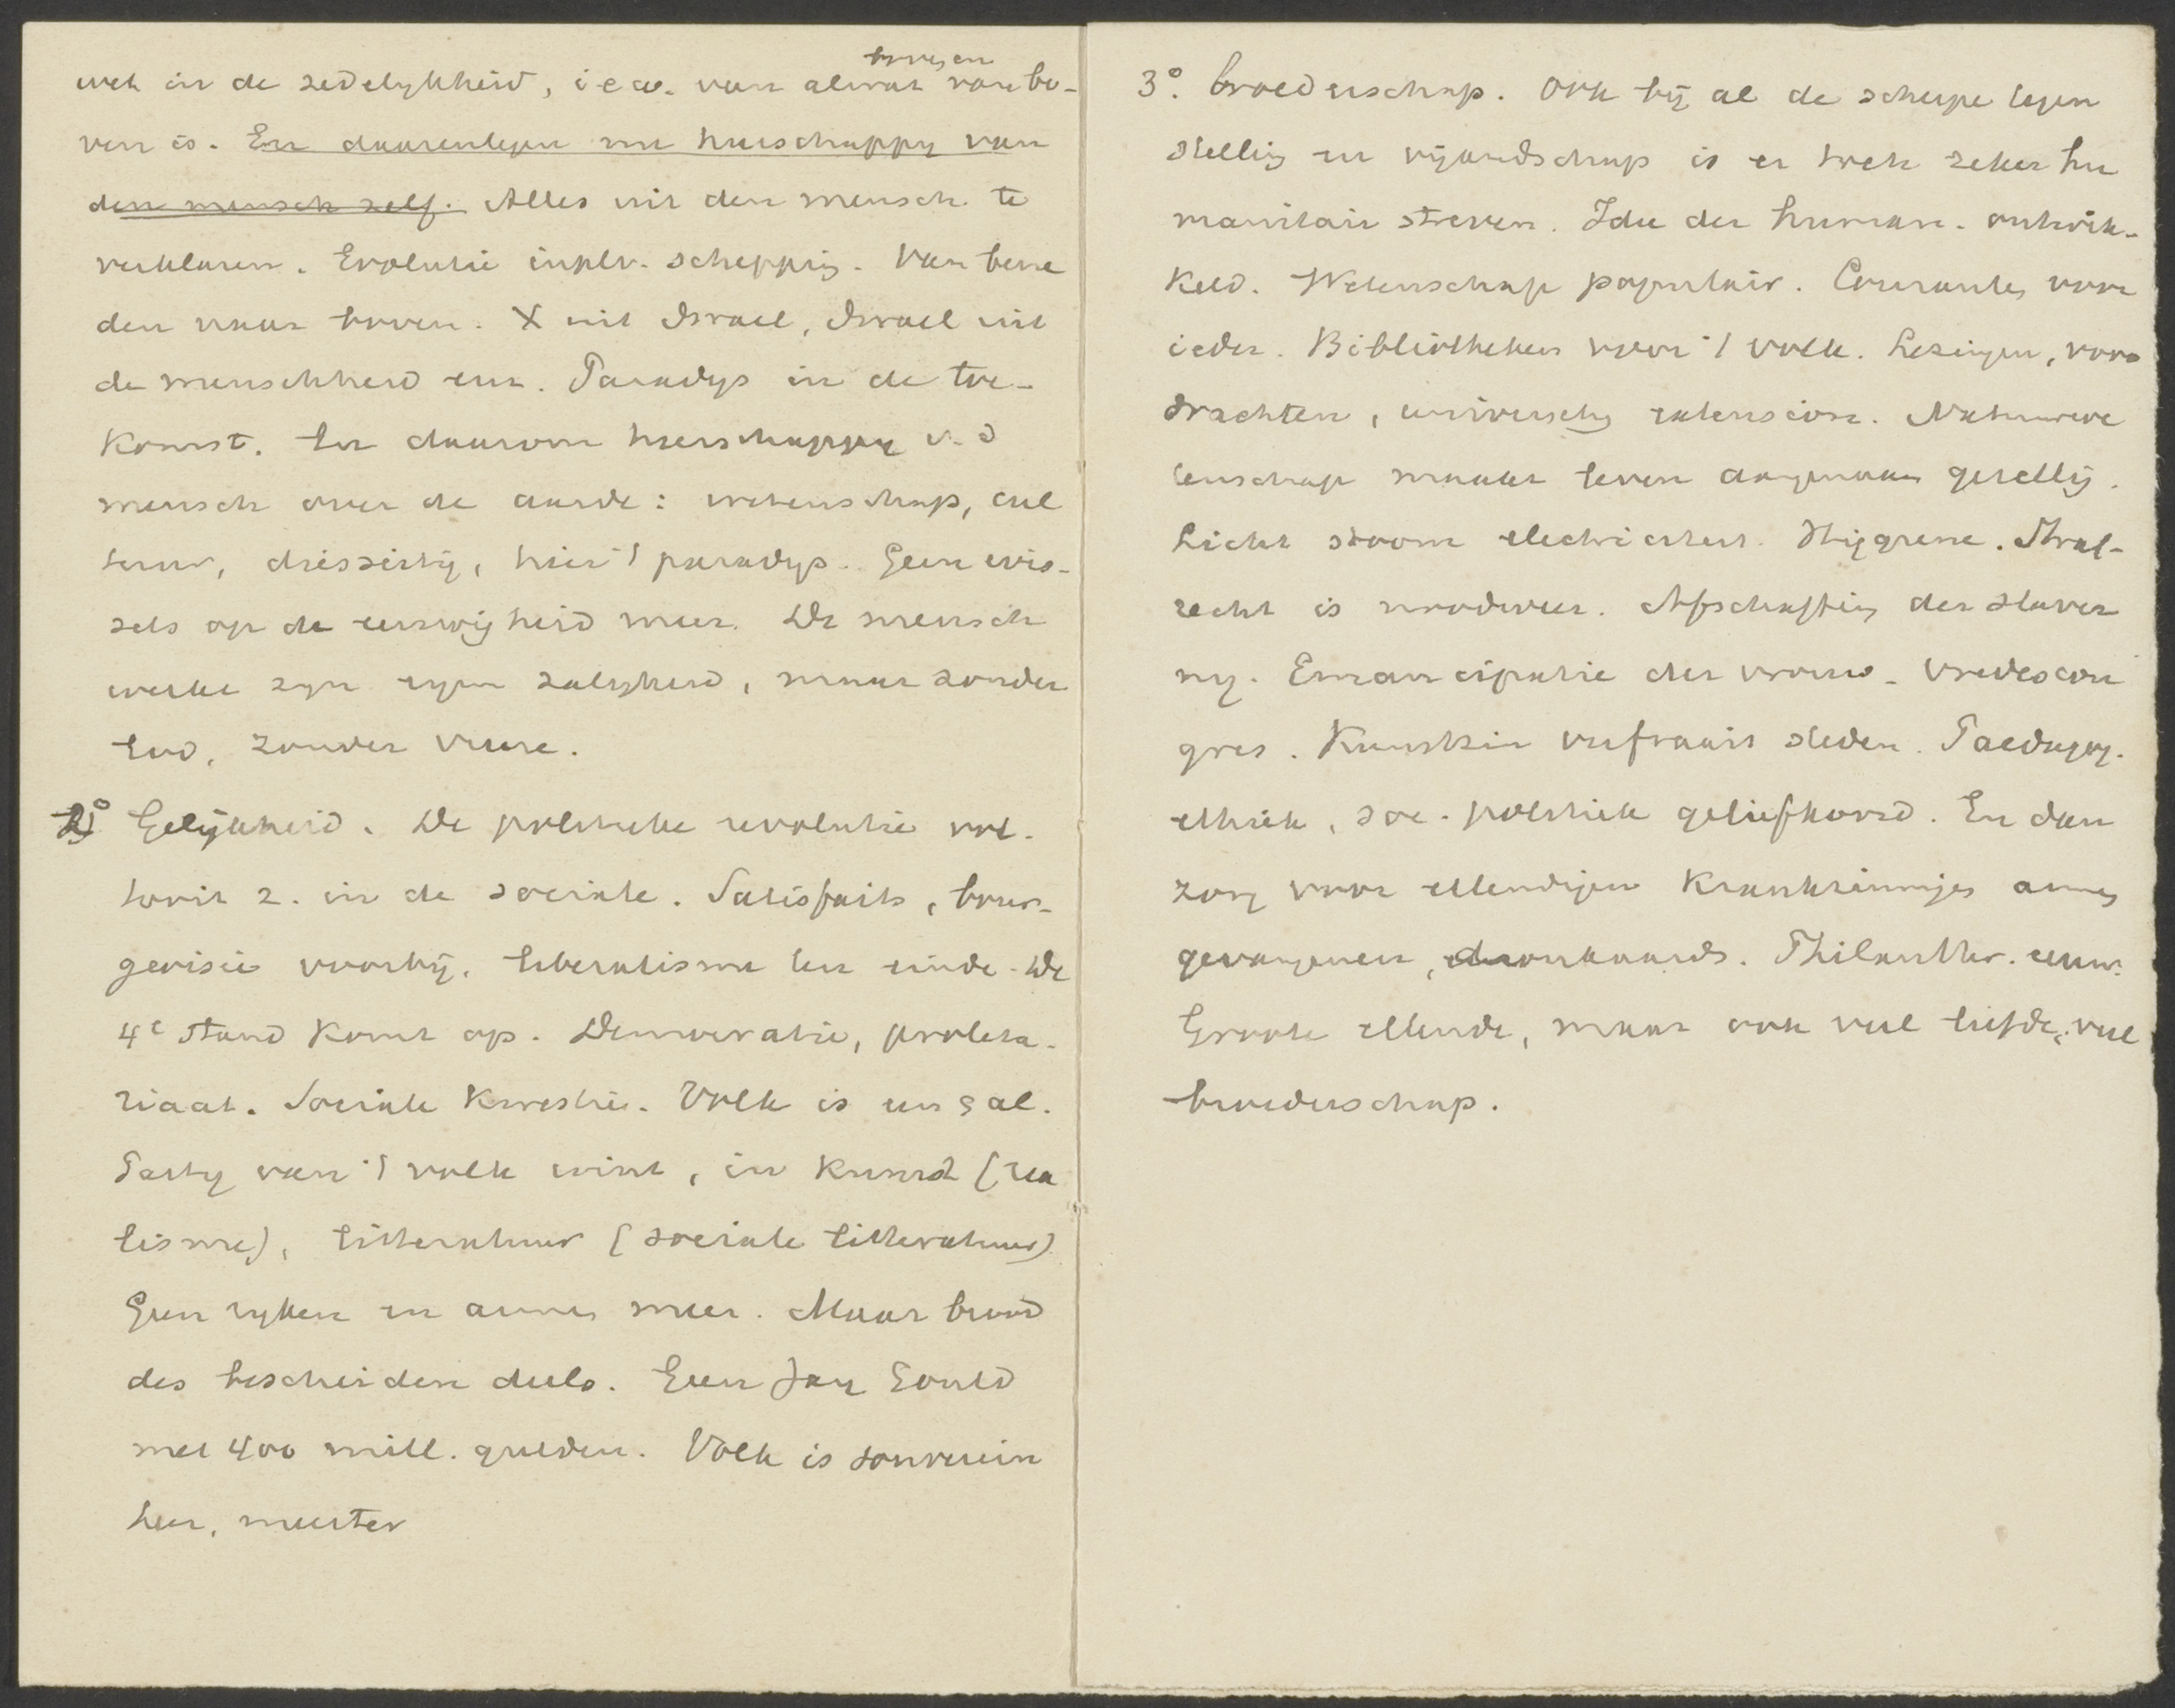 wet in de zedelykheid, i e w. van alwat van bo-
ven is. En daarentegen nu heerschappy van
den mensch zelf. Alles uit den mensch te
verklaren. Evolutie inplv. schepping. Van bene
den naar boven. X uit Israel, Israel uit
de menschheid enz. Paradys in de toe-
komst. En daarom heerschappy v. d
mensch over de aarde: wetenschap, cul
tuur, hier 't paradys. Geen wis-
sels op de eeuwigheid meer. De mensch
werke zyn eigen zaligheid, maar zonder
God, zonder vreeze.
2° Gelijkheid. De politieke revolutie vol-
tooit z. in de sociale. Satisfaits, bour-
geoisie voorbij. Liberalisme ten einde. De
4e stand komt op. Democratie, proleta-
riaat. Sociale kwestie. Volk is een & al.
Party van 't volk wint, in kunst (rea
lisme), litteratuur (sociale litteratuur)
Geen ryken en armen meer. Maar brood
des bescheiden deels. Geen Jay Gould
met 400 mill. gulden. Volk is souverein
heer, meester
3°. broederschap. Ook bij al de scherpe tegen
stelling en vijandschap is er toch zeker hu
manitair streven. Idee der human. ontwik-
keld. Wetenschap populair. Couranten voor
ieder. Bibliotheken voor 't volk. Lezingen, voor
drachten, university extension. Natuurwe
tenschap maakt leven aangenaam gezellig.
Licht stoom electriciteit. Hygiene. Straf-
recht is . Afschaffing der slaver
ny. Emancipatie der vrouw. Vredescon
gres. Kunstzin verfraait steden. Paedagog.
ethiek, soc. politiek geliefkoosd. En dan
zorg voor ellendigen krankzinniges armen
gevangenen, dronkaards. Philanthr. eeuw.
Groote ellende, maar ook veel liefde, veel
broederschap.